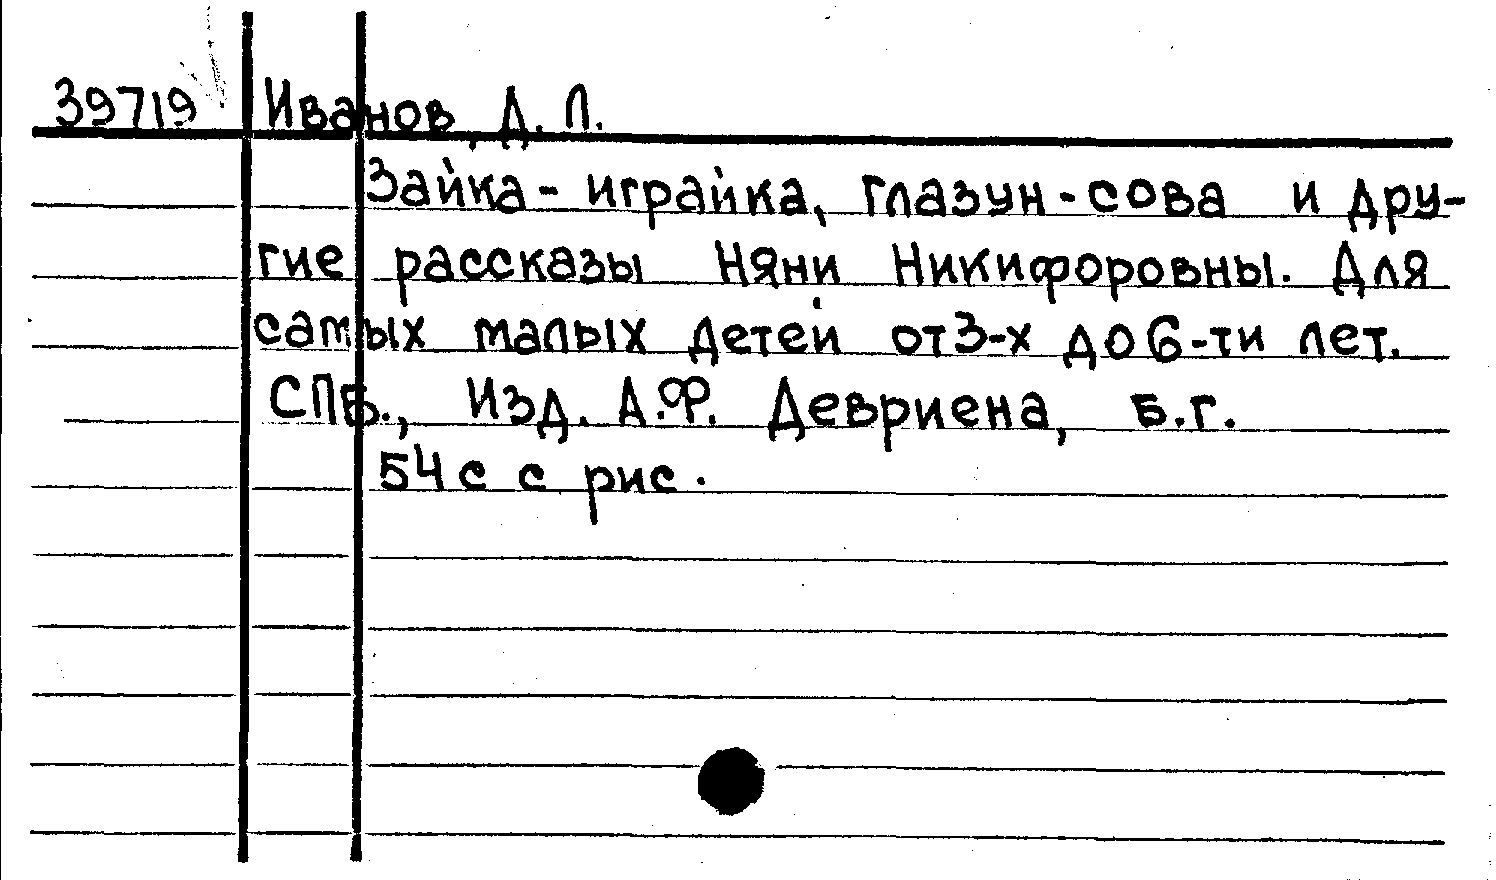 39719 Иванов, Д. Л.
Зайка - играйка, глазун - сова и дру-
гие рассказы Няни Никифоровны. Для
самых малых детей от 3-х до 6-ти лет.
СПБ., Изд. А.Ф. Девриена, б.г.
54 с с рис.